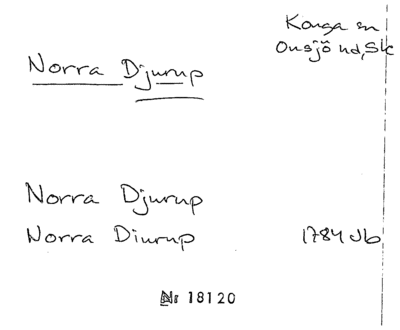 Konga sn
Onsjö hd, Sk
Norra Djurup
Norra Djurup
Norra Diurup 1784 Jb
Nr 18120